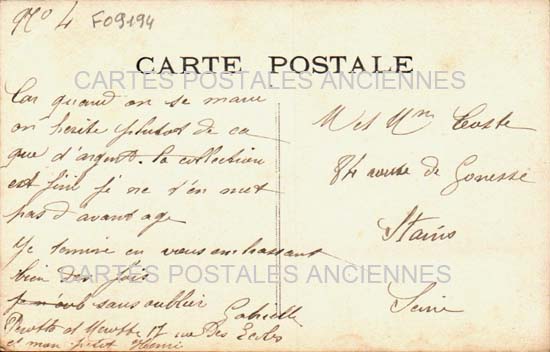 N° 4 F09194
CARTE POSTALE
CARTES POSTALES ANCIENNES
Car quand on se marie
on herite plutot de ca
que d'argent. la collection
est fini je ne t'en met
pas d'avantage
Je termine en vous embrassant
bien des fois
sans oublier
Gabrielle
17 rue Des Ecoles
et mon petit Henri
M et Mm Coste
84 route de Gonesse
Stains
Seine
CARTES POSTALES ANCIENNES